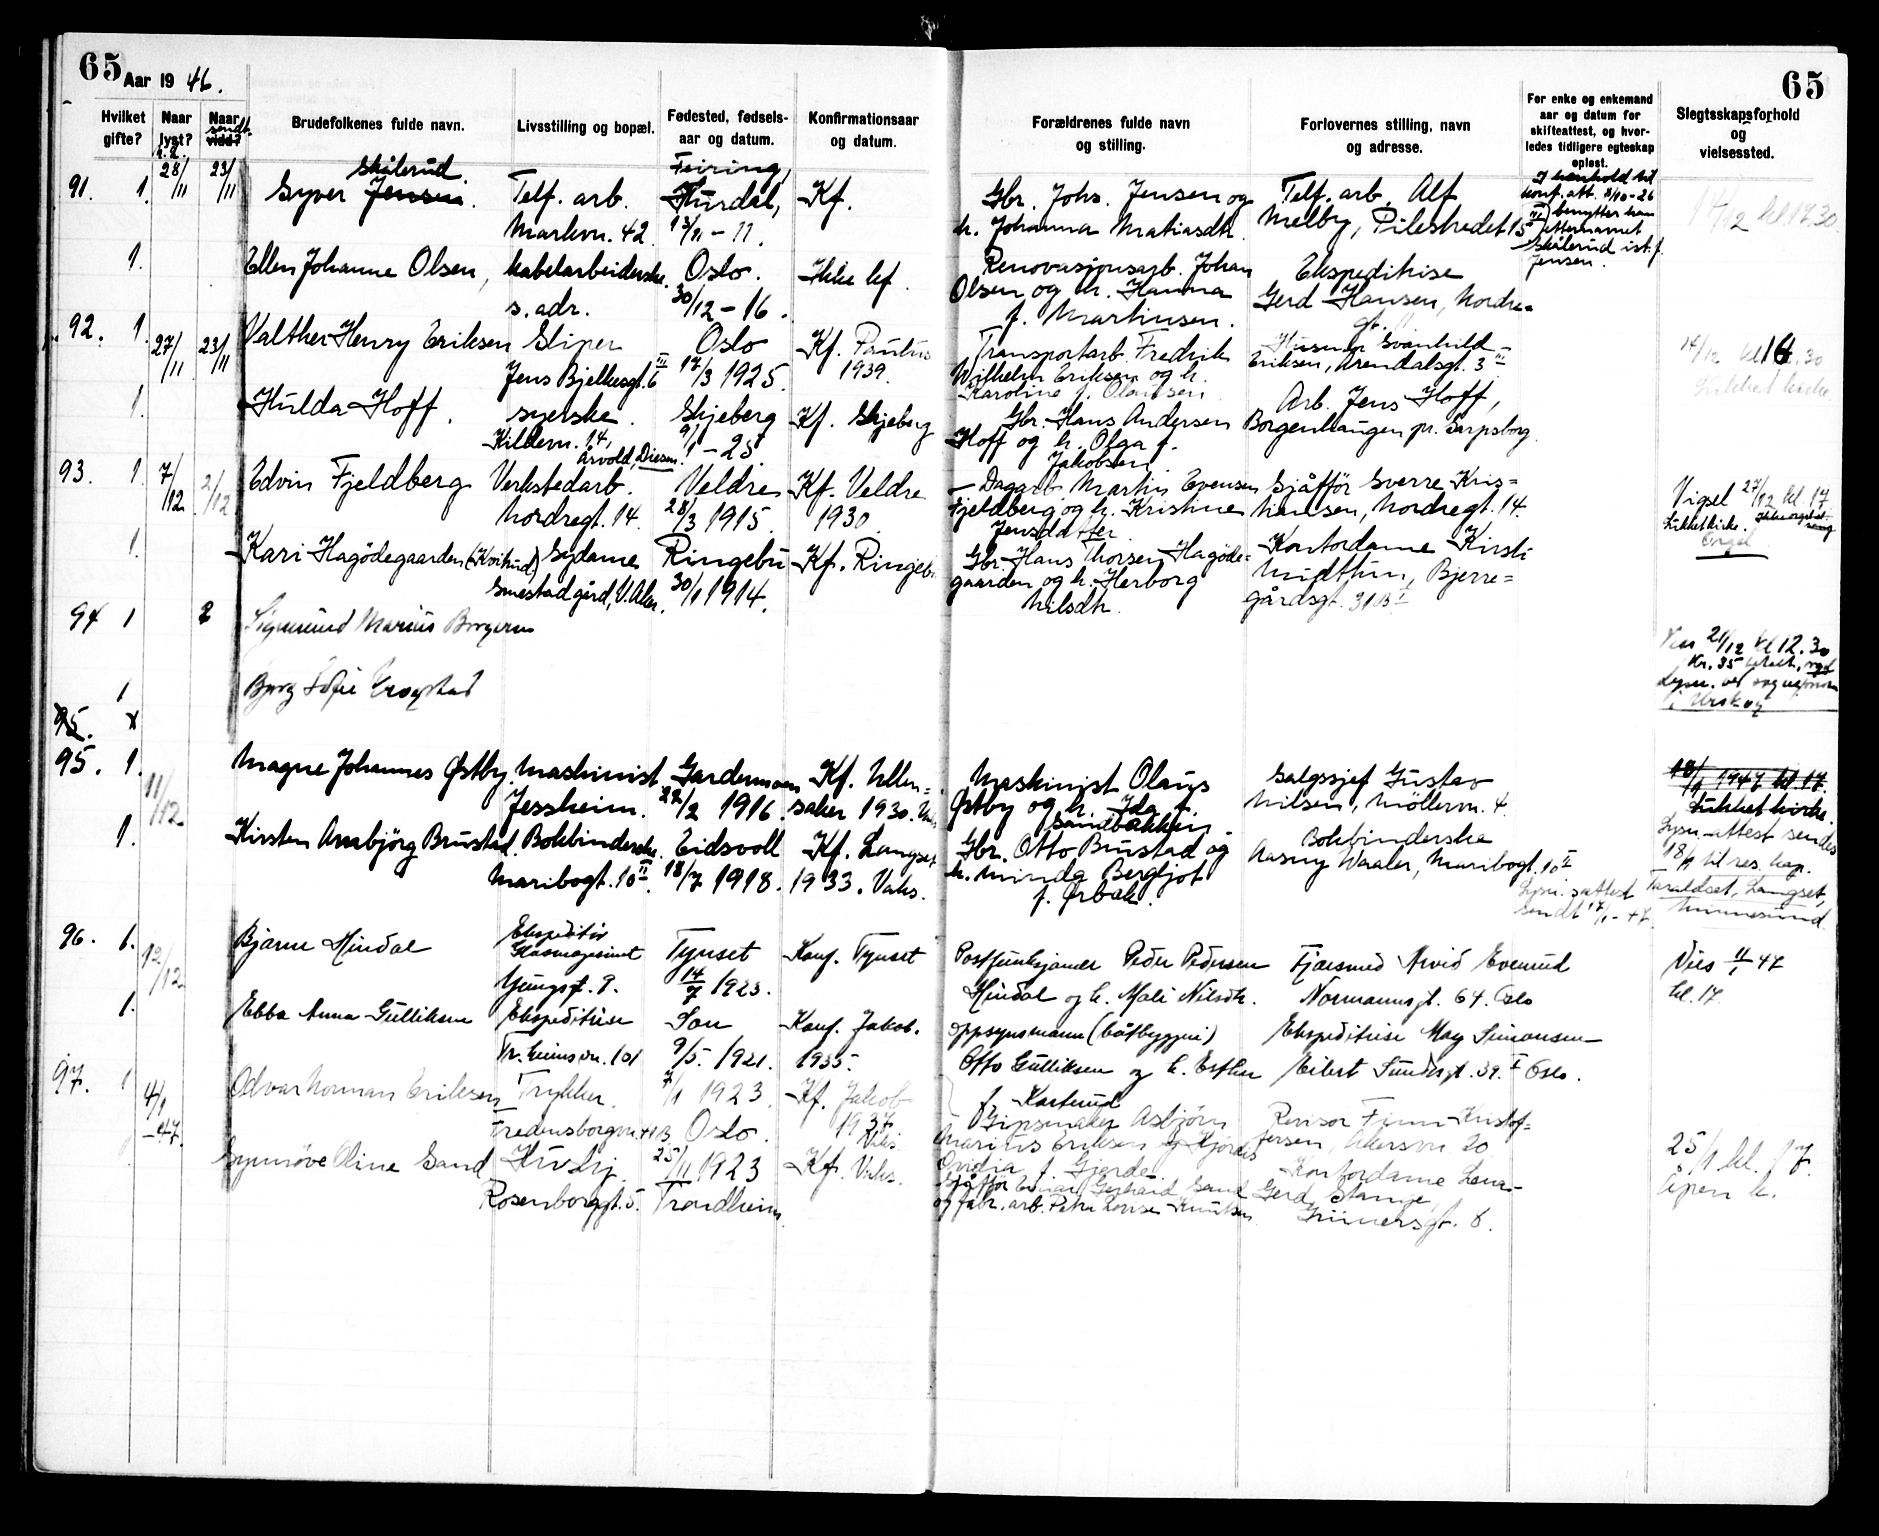 65 Aar 19 46.
65
Hvilket gifte?
Naar lyst?
Naar sendt vidd?
Brudefolkenes fulde navn.
Livsstilling og bopæl.
Fødested, fødsels-
aar og datum.
Konfirmationsaar
og datum.
Forældrenes fulde navn
og stilling.
Forlovernes stilling, navn
og adresse.
For enke og enkemand
aar og datum for
skifteattest, og hvor-
ledes tidligere egteskap
opløst.
Slegtsskapsforhold
og
vielsessted.
91. 1. 28/11 23/11
Skålerud
Syver Jensen.
Telf. arb.
Markvn. 42.
Feiring,
Hurdal,
13/11 - 11.
Kf.
Gbr. Johs. Jensen og
h. Johanna Matiasdtr.
Telf. arb. Alf
Melby, Pilestredet 15 III
I henhold til
konf. att. 8/10-26
benytter han
etternavnet
Skålerud ist. f.
Jensen.
14/12 kl. 17.30.
1.
Ellen Johanne Olsen,
kabelarbeiderske.
s. adr.
Oslo.
30/12 - 16.
Ikke kf.
Renovasjonsarb. Johan
Olsen og h. Hanna
f. Martinsen.
Ekspeditrise
Gerd Hansen, Nordre-
gt. 11.
92. 1. 27/11 23/11
Valther Henry Eriksen
Sliper
Jens Bjelkesgt. 6 III
Oslo
17/3 1925.
Kf. Paulus
1939.
Transportarb. Fredrik
Wilhelm Eriksen og h.
Karoline f. Olaussen
Husmor Svanhild
Eriksen, Arendalsgt. 3 III
14/12 kl 16.30
Lukket kirke
1.
Hulda Hoff.
syerske.
Kildevn. 14,
Årvold, Disen.
Skjeberg
9/1 - 25.
Kf. Skjeberg
Gbr. Hans Andersen
Hoff og h. Olga f.
Jakobsen.
Arb. Jens Hoff,
Borgenhaugen pr. Sarpsborg.
93. 1. 7/12 2/12
Edvin Fjeldberg
Verkstedarb.
Nordregt. 14.
Veldre
28/3 1915.
Kf. Veldre
1930.
Dagarb. Martin Evensen
Fjeldberg og h. Kristine
Jensdatter
Sjåffør Sverre Kris-
tiansen, Nordregt. 14.
Vigsel 27/12 kl. 17
Lukket kirke.
Orgel
1.
Kari Hagödegaarden (Kvitrud)
Sydame
Smestad gård, V. Aker.
Ringebu
30/1 1914.
Kf. Ringebu
Gbr. Hans Thorsen Hagöde-
gaarden og h. Herborg
Nilsdtr.
Kontordame Kirsti
Midttun, Bjerre-
gårdsgt. 31B I
94 1 2
Sigmund Marius Borgersen
Viss 21/12 kl 12.30
kr. 35 betalt
i Urskog
1
Bjørg Sofie Krogstad
95. x
95. 1. 11/12
Magne Johannes Østby.
Maskinist
Jessheim.
Gardermoen
22/2 1916.
Kf. Ullen-
saker 1930. Vaks.
Maskinist Olaus
Østby og h. Ida f.
Sandbakken.
Salgssjef Gustav
Nilsen, Möllervn. 4.
18/1 1947 kl. 17.
Lukket kirke.
Lysn.-attest sendes
18/1 til res. kap.
Taraldset, Langset,
Minnesund
1.
Kirsten Annbjörg Brustad.
Bokbinderske.
Maribogt. 10 II.
Eidsvoll
18/7 1918.
Kf. Langset
1933. Vaks.
Gbr. Otto Brustad og
h. Minda Bergljot
f. Ørbæk.
Bokbinderske
Aasny Waaler, Maribogt. 10 II
Lysn.sattest
sendt 17/1 - 47.
96. 1. 12/12
Bjarne Hindal
Ekspeditör
Glasmagasinet
Youngsgt. 9.
Tynset
14/7 1923.
Konf. Tynset
Postfunksjonær Peder Pedersen
Hindal og h. Mali Nilsdtr.
Fjærsmed Arvid Evenrud
Normannsgt. 64. Oslo
Vies 11/1 47
kl. 17
1.
Ebba Anna Gulliksen
Ekspeditrise
Tr.heimsvn. 101
Son
9/5. 1921.
Konf. Jakob.
1935.
Oppsynsmann (båtbyggeri)
Otto Gulliksen og h. Esther
f. Karterud
Ekspeditrise May Simonsen
Eilert Sundsgt. 39. I Oslo.
97. 1 4/1 -47.
Odvar Norman Eriksen
Trykker.
Fredensborgvn. 41B
7/1 1923.
Oslo.
Kf. Jakob
1937.
Vaks.
Gipsmaker Asbjörn
Marius Eriksen og Hjördis
Ovidia f. Gjerde
Revisor Finn Kristof-
fersen, Akersvn 20
25/1 kl. 17.
Åpen k.
Synnöve Oline Sand
Husby
Rosenborggt. 5.
25/11 1923
Trondheim
Kf. Vaks.
Sjåffør Einar Gerhard Sand
og fabr. arb. Petra Lovise Knutsen
Kontordame Lena-
Gerd Stange,
Grünersgt. 6.